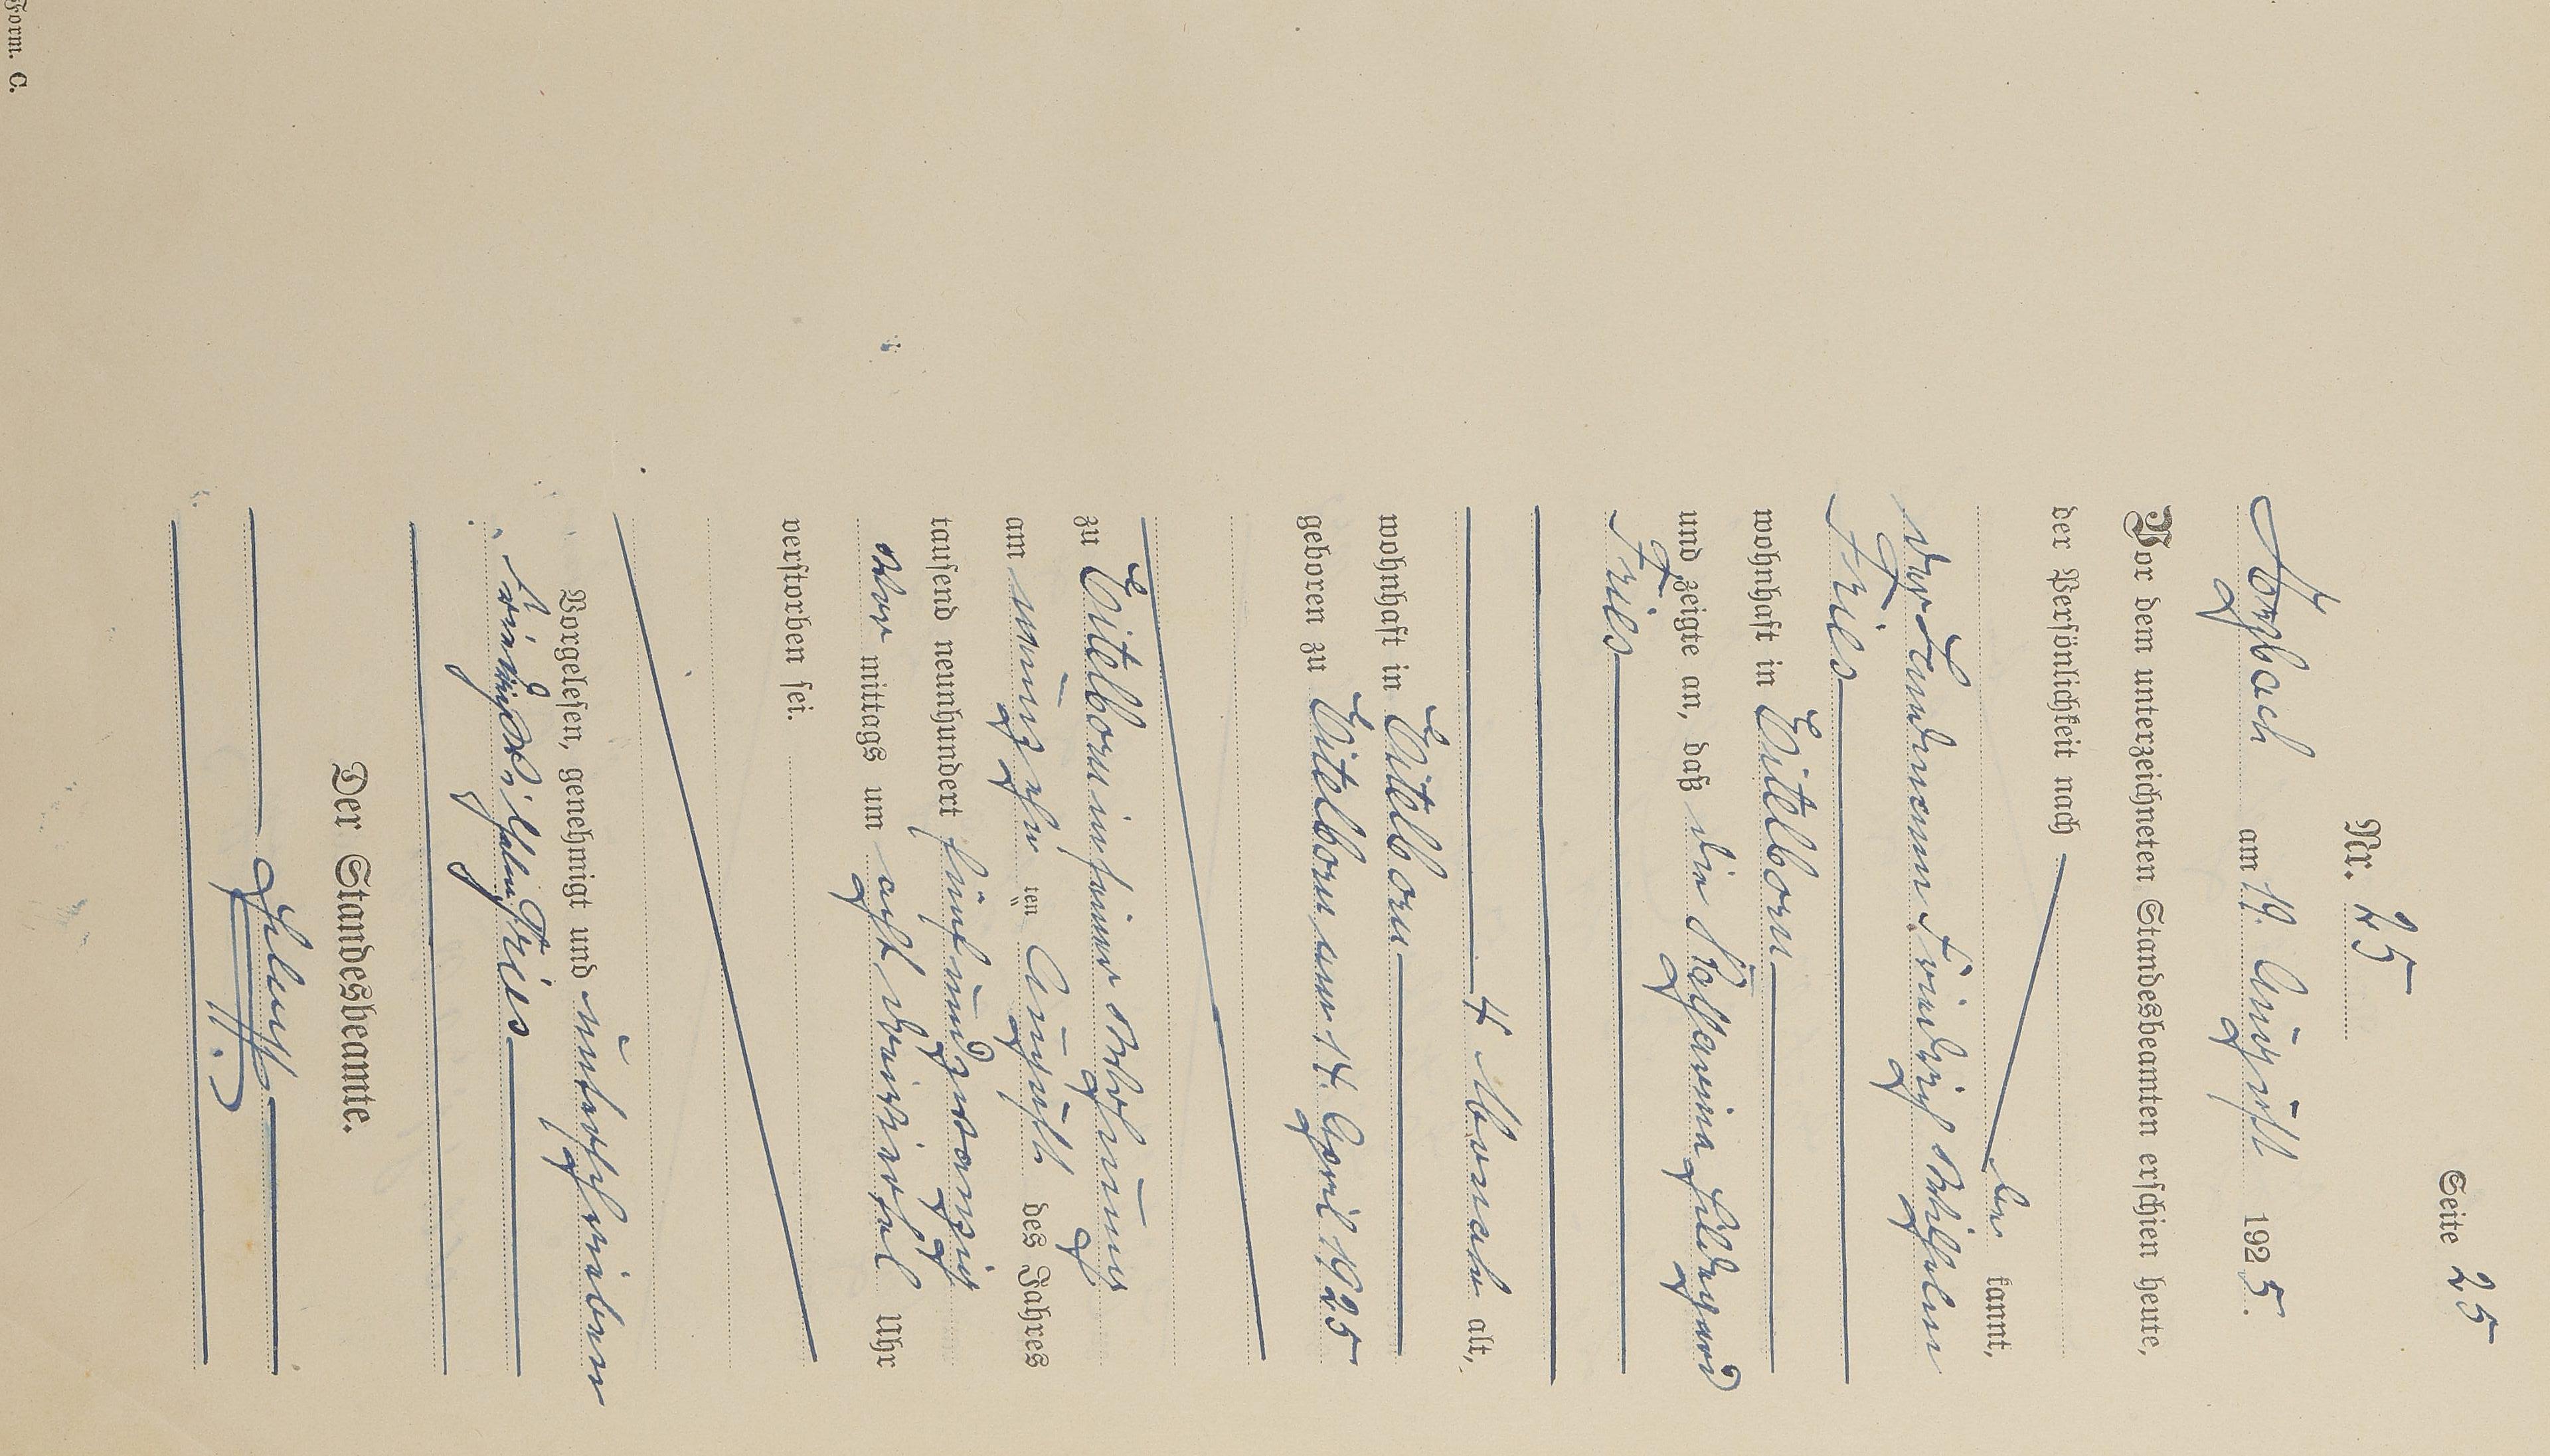 Seite 25
Nr. 25
Arzbach am 19. August 1925.
Vor dem unterzeichneten Standesbeamten erschien heute,
der Persönlichkeit nach
be kannt,
der Landmann Friedrich Wilhelm
Fries
wohnhaft in Eitelborn
und zeigte an, daß die Katharina Hildegard
Fries
4 Monate alt,
wohnhaft in Eitelborn
geboren zu Eitelborn am 14. April 1925
zu Eitelborn in seiner Wohnung
am neunzehn ten August des Jahres
tausend neunhundert fünfundzwanzig
vor mittags um acht dreiviertel Uhr
verstorben sei.
Vorgelesen, genehmigt und unterschrieben
Friedrich Wilhelm Fries
Der Standesbeamte.
Form. C.